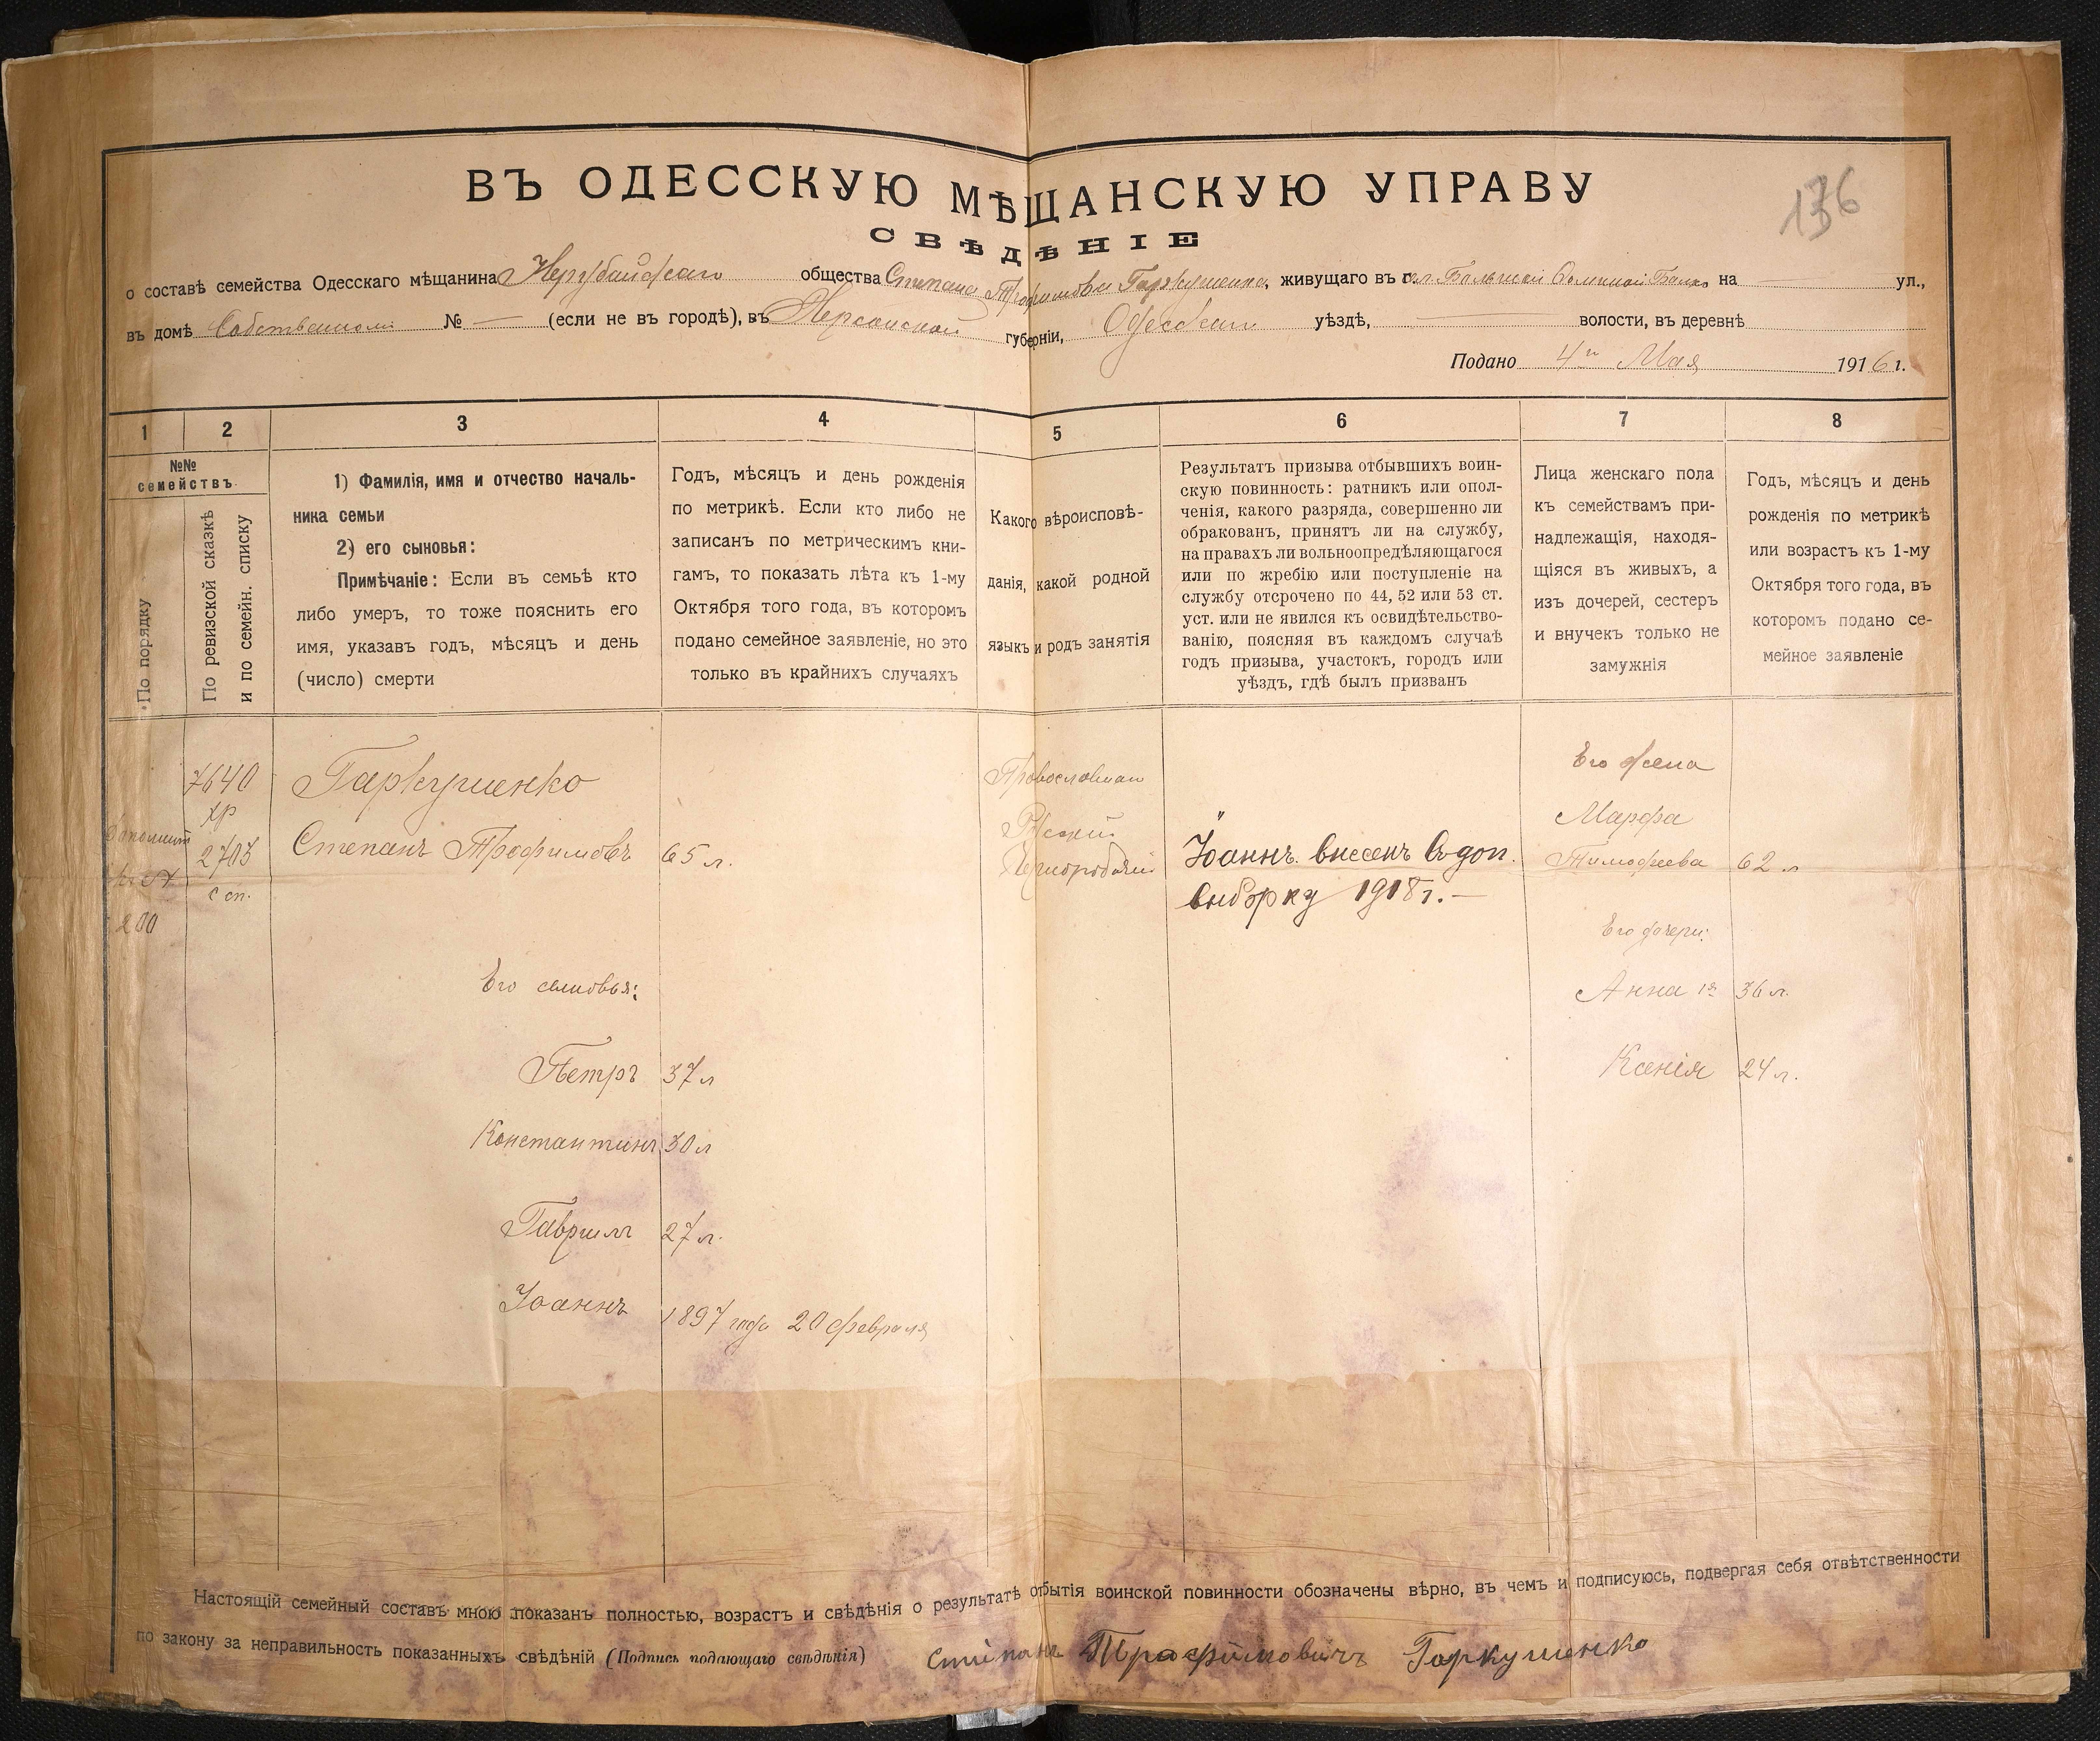 136
ВЪ ОДЕССКУЮ МѢЩАНСКУЮ УПРАВУ
СВѢДѢНІЕ
о составѣ семейства Одесскаго мѣщанина Нерубайскаго общества Степана Трофимова Гаркушенка, живущаго въ г. на — ул.,
въ домѣ Собственномъ № — (если не въ городѣ), въ Херсонской губерніи, Одесскаго уѣздѣ, — волости, въ деревнѣ
Подано 4го Мая 1916 г.
1 2 3 4 5 6 7 8
№№ семействъ
По порядку
По ревизской сказкѣ
и по семейн. списку
1) Фамилія, имя и отчество началь-
ника семьи
2) его сыновья:
Примѣчаніе: Если въ семьѣ кто
либо умеръ, то тоже пояснить его
имя, указавъ годъ, мѣсяцъ и день
(число) смерти
Годъ, мѣсяцъ и день рожденія
по метрикѣ. Если кто либо не
записанъ по метрическимъ кни-
гамъ, то показать лѣта къ 1-му
Октября того года, въ которомъ
подано семейное заявленіе, но это
только въ крайнихъ случаяхъ
Какого вѣроисповѣ-
данія, какой родной
языкъ и родъ занятія
Результатъ призыва отбывшихъ воин-
скую повинность: ратникъ или опол-
ченія, какого разряда, совершенно ли
обракованъ, принятъ ли на службу,
на правахъ ли вольноопредѣляющагося
или по жребію или поступленіе на
службу отсрочено по 44, 52 или 53 ст.
уст. или не явился къ освидѣтельство-
ванію, поясняя въ каждомъ случаѣ
годъ призыва, участокъ, городъ или
уѣздъ, гдѣ былъ призванъ
Лица женскаго пола
къ семействамъ при-
надлежащія, находя-
щіяся въ живыхъ, а
изъ дочерей, сестеръ
и внучекъ только не
замужнія
Годъ, мѣсяцъ и день
рожденія по метрикѣ
или возрастъ къ 1-му
Октября того года, въ
которомъ подано се-
мейное заявленіе
7640 Гаркушенко Православный Его жена
Русскій Марфа
2703 Степанъ Трофимовъ 65 л. Чернорабочій Іоаннъ внесенъ въ доп. Тимофеева 62 л
с сп. выборку 1918 г.—
200
Его дочери:
Его сыновья: Анна 1я 36 л.
Петръ 37 л Ксенія 24 л.
Константинъ 30 л
Гавриилъ 27 л.
Іоаннъ 1897 года 20 февраля
Настоящій семейный составъ мною показанъ полностью, возрастъ и свѣдѣнія о результатѣ отбытія воинской повинности обозначены вѣрно, въ чемъ и подписуюсь, подвергая себя отвѣтственности
по закону за неправильность показанныхъ свѣдѣній (Подпись подающаго свѣдѣнія) Степанъ Трафимовичъ Гаркушенко